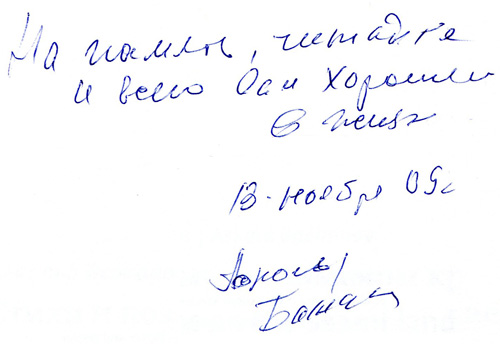 На память, читайте
и всего Вам хорошего
в жизни
13 ноября 09г